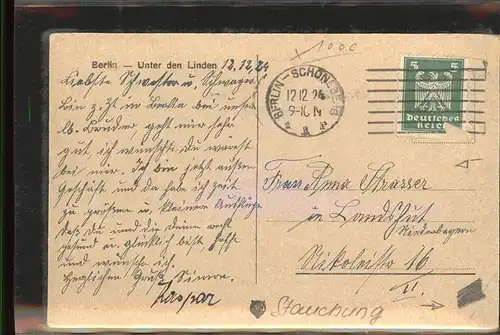 Berlin — Unter den Linden 12.12.24
Liebste Schwester u. Schwager
Bin z. Zt. in Berlin bei unser
lb. Bruder geht mir sehr
gut ich wünschte Du wärst
bei mir. Ich bin jetzt außen
Geschäft und da habe ich Zeit
zu größern u. kleiner Ausflüge
daß Du und die Deinen wohl
gesund u. glücklich bist hofft
und wünscht ich.
Herzlichen Gruß Simon.
Kaspar
1000
BERLIN-SCHÖNEBERG
12.12.24
9-10 N
5 5
Deutsches
Reich
Frau Anna Strasser
in Landshut
Niederbayern
Nikolaistr 16
II.
Stauchung